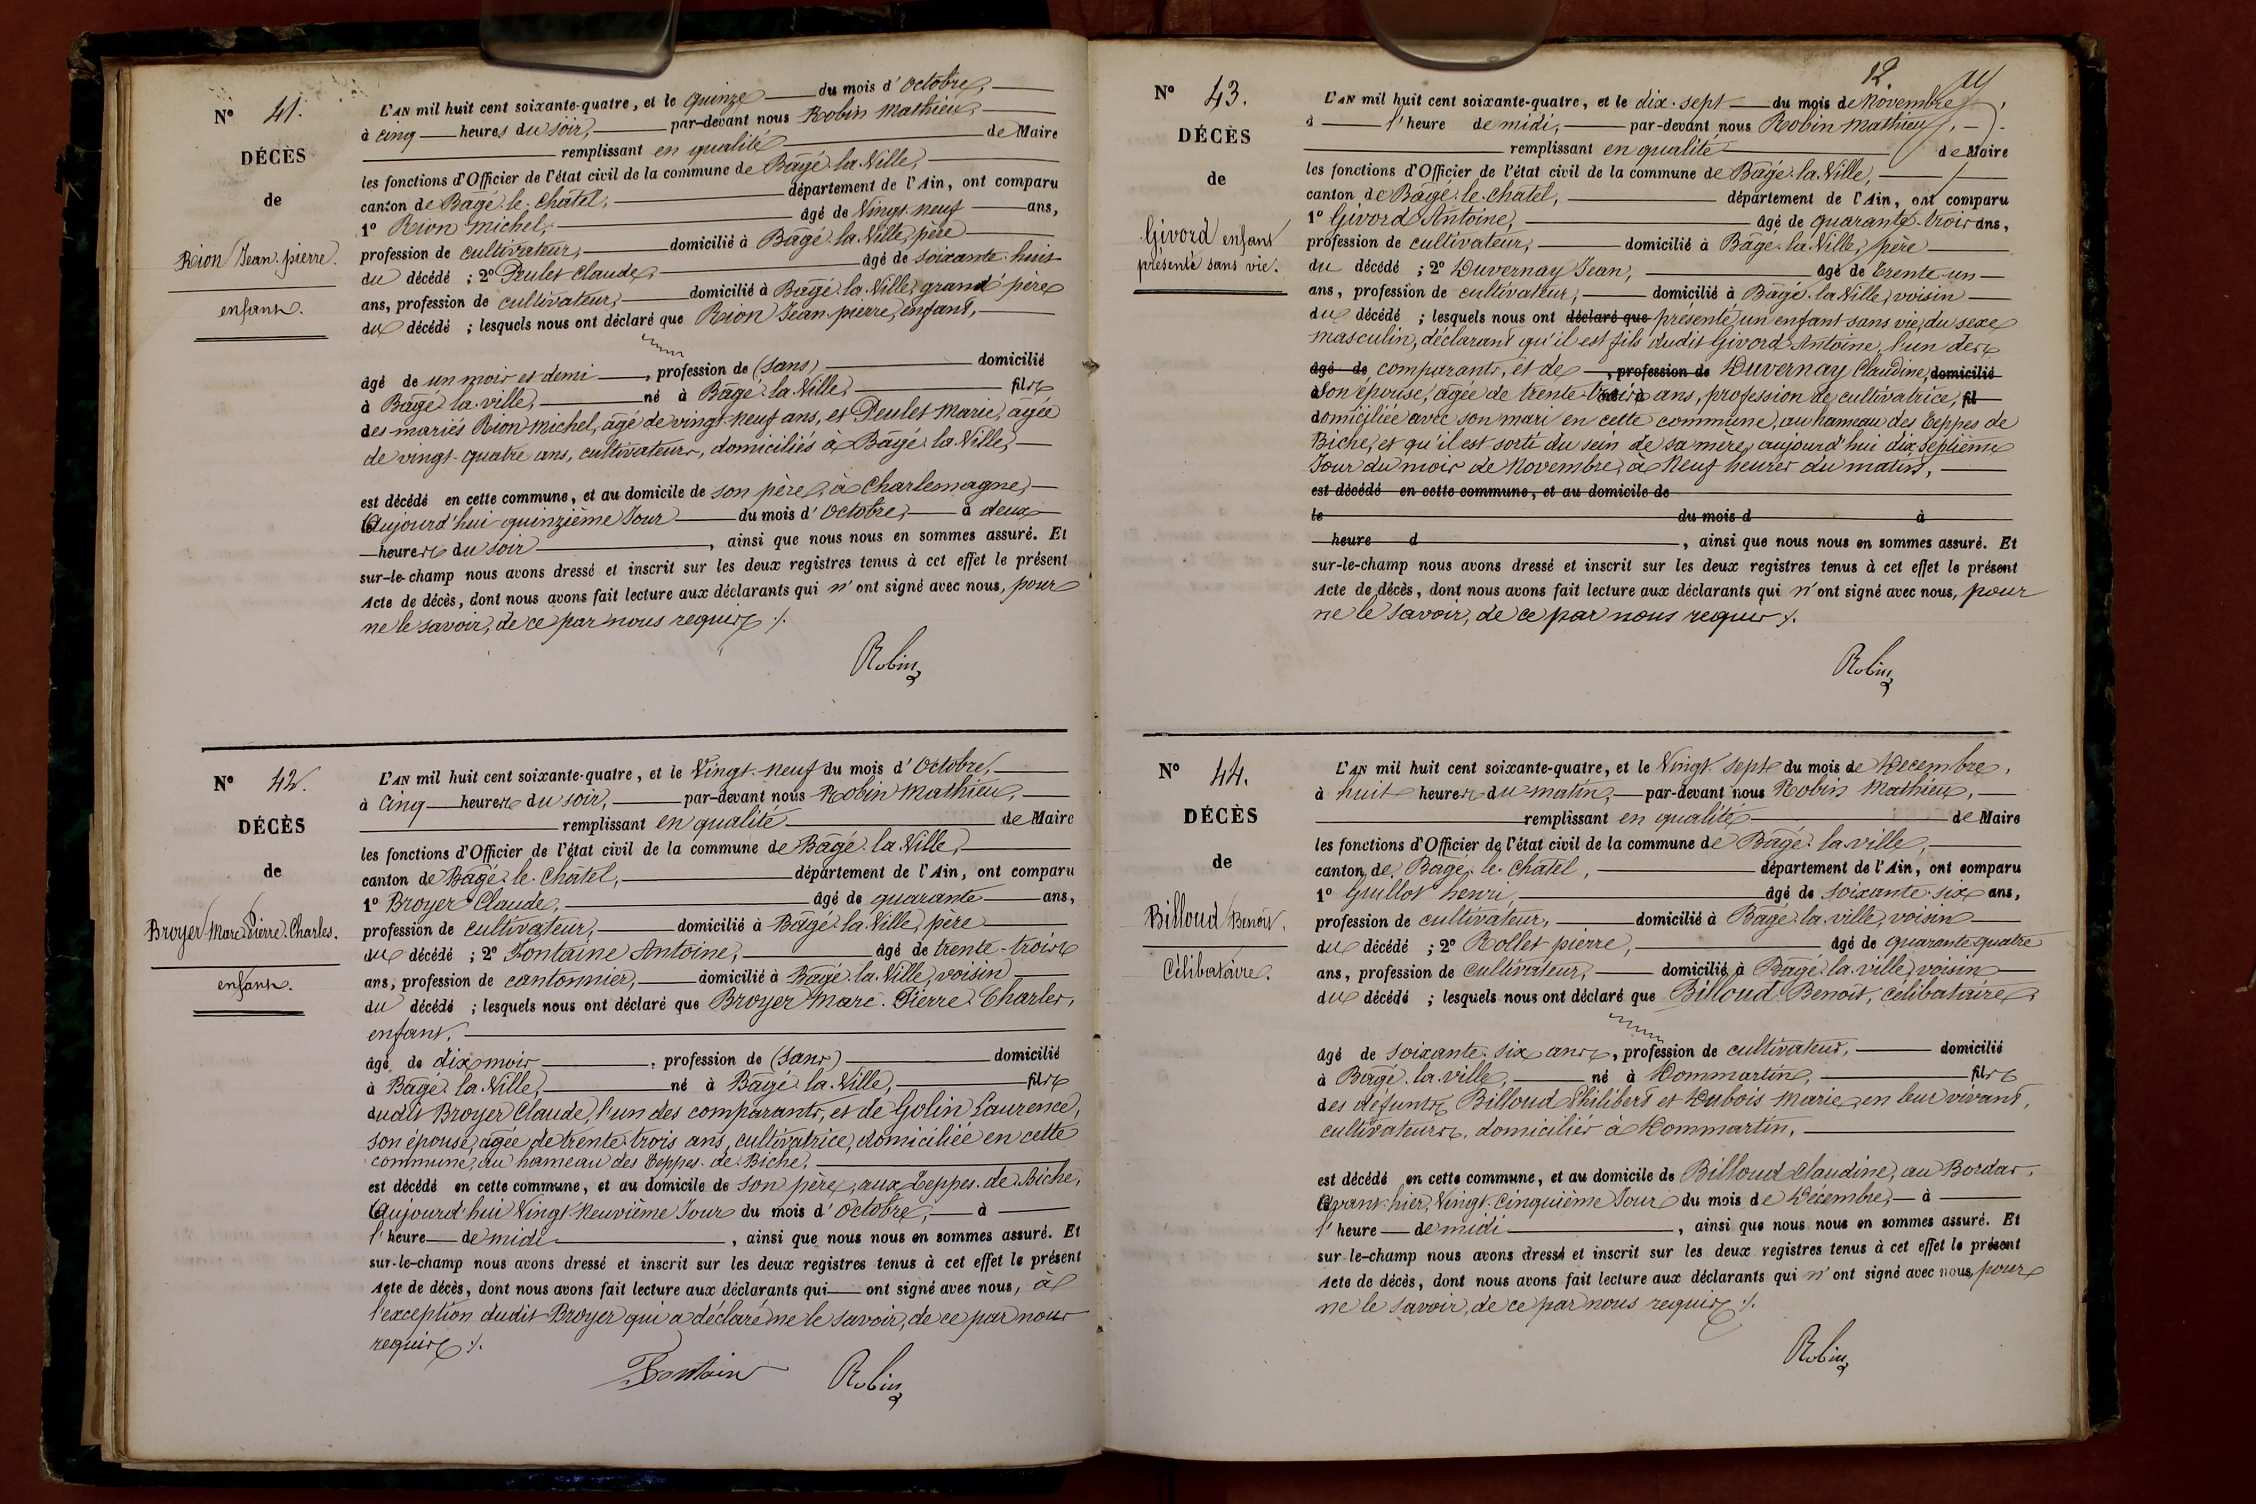 N° 41.
DÉCÈS
de
Rion Jean-pierre.
enfant.
L'AN mil huit cent soixante-quatre, et le quinze du mois d'octobre,
à cinq heures du soir, par-devant nous Robin Mathieu,
remplissant en qualité de Maire
les fonctions d'Officier de l'état civil de la commune de Bâgé-la-Ville,
canton de Bâgé-le-Châtel, département de l'Ain, ont comparu
1° Rion michel, âgé de Vingt-neuf ans,
profession de cultivateur, domicilié à Bâgé-la-Ville, père
du décédé ; 2° Peulet Claude, âgé de soixante-huit
ans, profession de cultivateur, domicilié à Bâgé-la-Ville, grand'père
du décédé ; lesquels nous ont déclaré que Rion Jean-pierre, enfant,
âgé de un mois et demi, profession de (sans) domicilié
à Bâgé-la-ville, né à Bâgé-la-Ville, fils
des mariés Rion michel, âgé de vingt-neuf ans, et Peulet Marie, âgée
de vingt-quatre ans, cultivateurs, domiciliés à Bâgé-la-Ville,
est décédé en cette commune, et au domicile de son père, à Charlemagne,
Aujourd'hui quinzième Jour du mois d'octobre, à deux
heures du soir, ainsi que nous nous en sommes assuré. Et
sur-le-champ nous avons dressé et inscrit sur les deux registres tenus à cet effet le présent
Acte de décès, dont nous avons fait lecture aux déclarants qui n'ont signé avec nous, pour
ne le savoir, de ce par nous requis ./.
Robin
N° 42.
DÉCÈS
de
Broyer Marc-Pierre-Charles.
enfant.
L'AN mil huit cent soixante-quatre, et le Vingt-neuf du mois d'octobre,
à Cinq heures du soir, par-devant nous Robin Mathieu,
remplissant en qualité de Maire
les fonctions d'Officier de l'état civil de la commune de Bâgé-la-Ville,
canton de Bâgé-le-Châtel, département de l'Ain, ont comparu
1° Broyer Claude, âgé de quarante ans,
profession de cultivateur, domicilié à Bâgé-la-Ville, père
du décédé ; 2° Fontaine Antoine, âgé de trente-trois
ans, profession de cantonnier, domicilié à Bâgé-la-Ville, voisin
du décédé ; lesquels nous ont déclaré que Broyer Marc-Pierre-Charles,
enfant,
âgé de dix mois, profession de (sans) domicilié
à Bâgé-la-Ville, né à Bâgé-la-Ville, fils
dudit Broyer Claude, l'un des comparants, et de Golin Laurence,
son épouse, âgée de trente-trois ans, cultivatrice, domiciliée en cette
commune, au hameau des Teppes-de-Biche,
est décédé en cette commune, et au domicile de son père, aux Teppes-de-Biche,
Aujourd'hui Vingt-neuvième Jour du mois d'octobre, à
l'heure de midi, ainsi que nous nous en sommes assuré. Et
sur-le-champ nous avons dressé et inscrit sur les deux registres tenus à cet effet le présent
Acte de décès, dont nous avons fait lecture aux déclarants qui ont signé avec nous, à
l'exception dudit Broyer qui a déclaré ne le savoir, de ce par nous
requis ./.
Fontaine Robin
12
N° 43.
DÉCÈS
de
Givord enfant
présenté sans vie.
L'AN mil huit cent soixante-quatre, et le dix-sept du mois de Novembre,
à l'heure de midi, par-devant nous Robin Mathieu,
remplissant en qualité de Maire
les fonctions d'Officier de l'état civil de la commune de Bâgé-la-Ville,
canton de Bâgé-le-Châtel, département de l'Ain, ont comparu
1° Givord Antoine, âgé de quarante-trois ans,
profession de cultivateur, domicilié à Bâgé-la-Ville, père
du décédé ; 2° Duvernay Jean, âgé de trente-un
ans, profession de cultivateur, domicilié à Bâgé-la-Ville, voisin
du décédé ; lesquels nous ont déclaré que présenté, un enfant sans vie, du sexe
masculin, déclarant qu'il est fils dudit Givord Antoine, l'un des
âgé de comparants, et de , profession de Duvernay Claudine, domicilié
à Son épouse, âgée de trente-trois ans, profession de cultivatrice, fil
domiciliée avec son mari en cette commune, au hameau des Teppes de
Biche, et qu'il est sorti du sein de sa mère, aujourd'hui dix-septième
Jour du mois de Novembre, à Neuf heures du matin,
est décédé en cette commune, et au domicile de
le du mois d à
heure d , ainsi que nous nous en sommes assuré. Et
sur-le-champ nous avons dressé et inscrit sur les deux registres tenus à cet effet le présent
Acte de décès, dont nous avons fait lecture aux déclarants qui n'ont signé avec nous, pour
ne le savoir, de ce par nous requis ./.
Robin
N° 44.
DÉCÈS
de
Billoud Benoît.
Célibataire.
L'AN mil huit cent soixante-quatre, et le Vingt-sept du mois de Décembre,
à huit heures du matin, par-devant nous Robin Mathieu,
remplissant en qualité de Maire
les fonctions d'Officier de l'état civil de la commune de Bâgé-la-ville,
canton de Bâgé-le-Châtel, département de l'Ain, ont comparu
1° Guillot henri, âgé de soixante-six ans,
profession de cultivateur, domicilié à Bâgé-la-ville, voisin
du décédé ; 2° Rollet pierre, âgé de quarante-quatre
ans, profession de cultivateur, domicilié à Bâgé-la-ville, voisin
du décédé ; lesquels nous ont déclaré que Billoud Benoît, célibataire,
âgé de soixante-six ans, profession de cultivateur, domicilié
à Bâgé-la-ville, né à Dommartin, fils
des défunts Billoud Philibert et Dubois Marie, en leur vivant,
cultivateurs, domiciliés à Dommartin,
est décédé en cette commune, et au domicile de Billoud Claudine, au Bordar,
Avant-hier, Vingt-cinquième Jour du mois de Décembre, à
l'heure de midi, ainsi que nous nous en sommes assuré. Et
sur-le-champ nous avons dressé et inscrit sur les deux registres tenus à cet effet le présent
Acte de décès, dont nous avons fait lecture aux déclarants qui n'ont signé avec nous, pour
ne le savoir, de ce par nous requis ./.
Robin